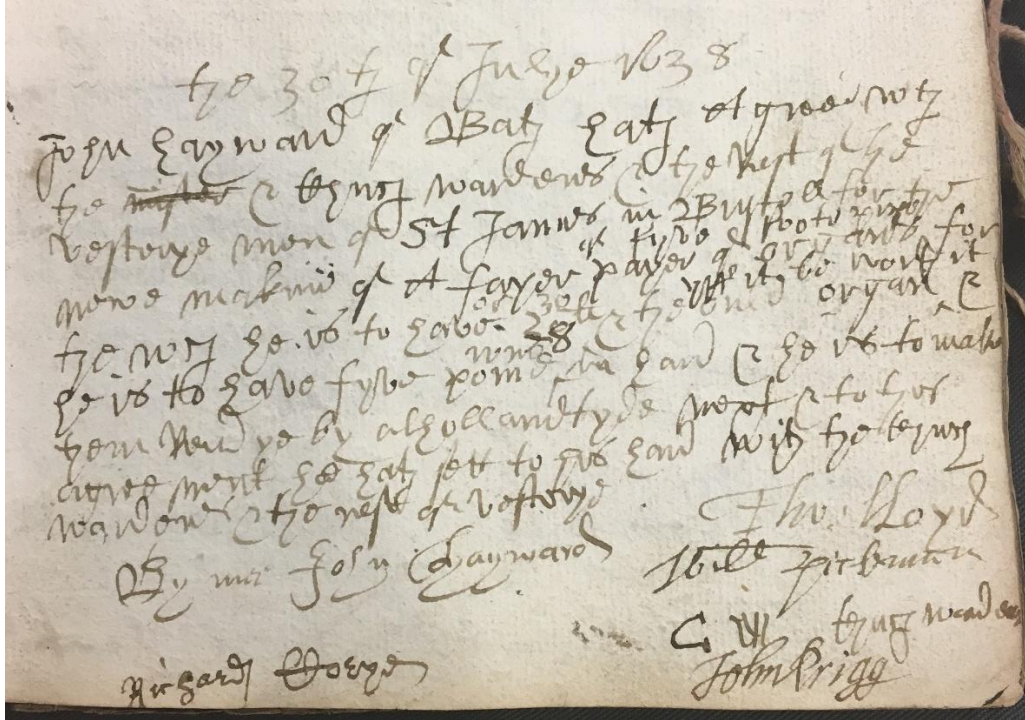 the 30th of Julye 1638
John hayward of Bath hath Agreed wth
the mister & Church wardens & the Rest of the
vestorye men of St Jameses in Bristoll for the
of fyve foote
newe making of A fayer payer of organs for
the wch he is to have 28 & the ould organ &
he is to have fyve pound in hand & he is to make
them Readye by alhollandtyde next & to this
agreement he hath sett to his hand with the Church
wardens & the rest of vestorye
By me John Hayward
Tho: LLoyd
Will
Church wardens
Richard
John Brigg